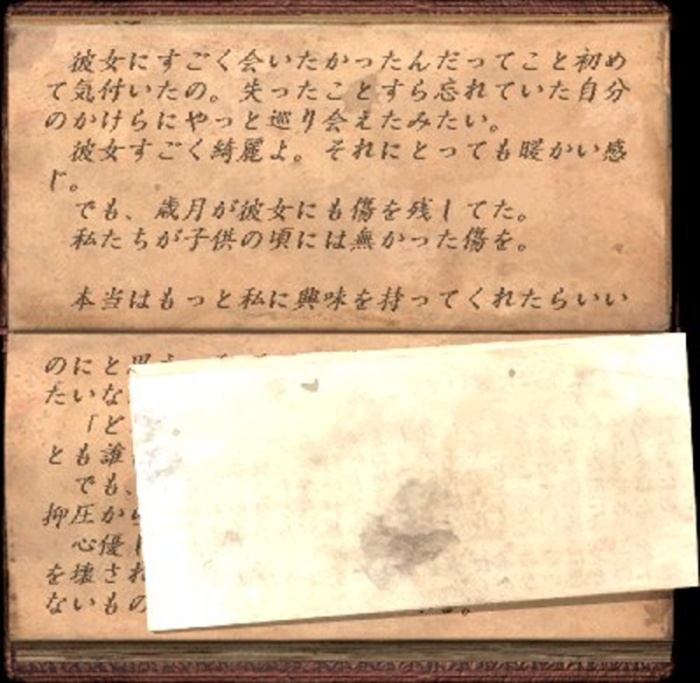 彼女にすごく会いたかったんだってこと初め
て気付いたの。失ったことすら忘れていた自分
のかけらにやっと巡り会えたみたい。
彼女すごく綺麗よ。それにとっても暖かい感
じ。
でも、歳月が彼女にも傷を残してた。
私たちが子供の頃には無かった傷を。
本当はもっと私に興味を持ってくれたらいい
のにと思
たいな
「ど
とも誰
でも、
抑圧か
心優し
を壊され
ないもの